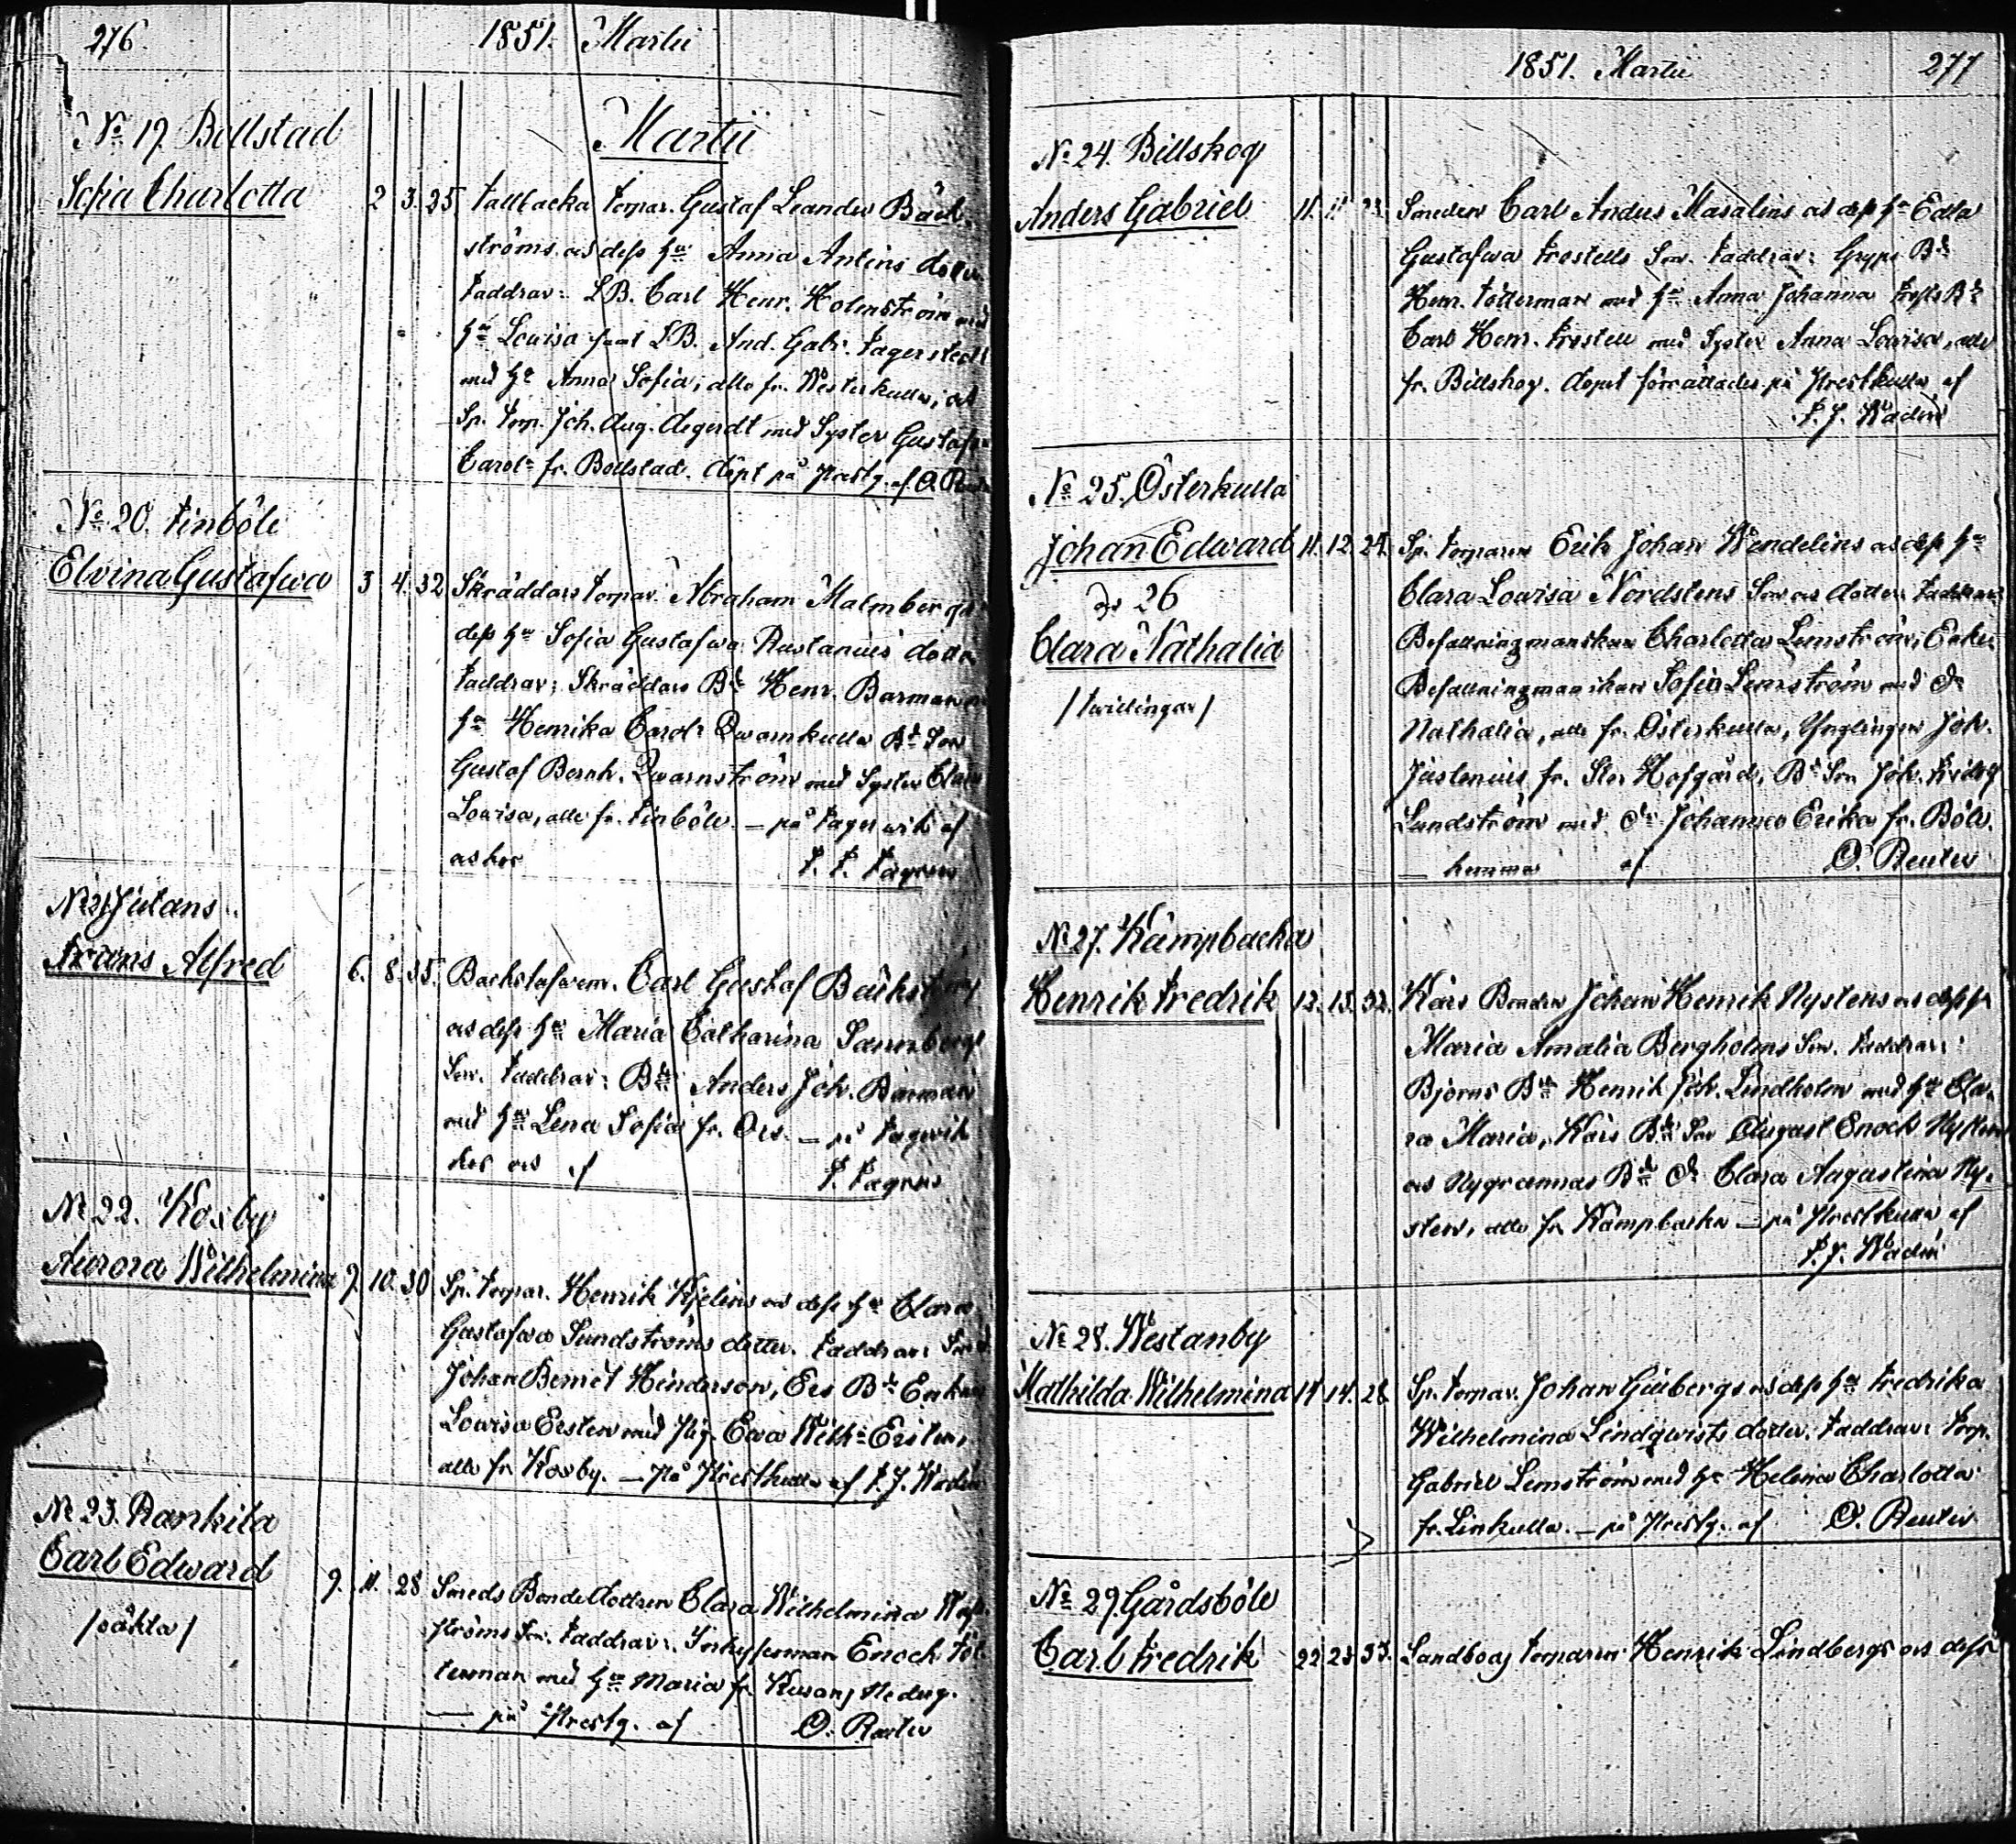 276
1851. Martii
Martii
No 19. Bollstad
Sofia Charlotta 2 3. 25 Tallbacka torpar. Gustaf Leander Bäck-
ströms och dess hu Anna Antins dotter
Faddrar: LB. Carl Henr. Holmström med
hu Lovisa samt LB. And. Gabr. Fagerstedt
med hu Anna Sofia, alla fr. Westerkulla, och
Sp. torp. Joh. Aug. Degerdt med Syster Gustafva
Carol. fr. Bollstad. Döpt på Prestg. af O. Reuter
No 20. Finböle
Elvina Gustafwa 3 4. 32 Skräddars torpar. Abraham Malmbergs
dess hu Sofia Gustafwa Rustanius dotter
Faddrar: Skräddars Bde Henr. Barman
hu Henrika Carol. Qwarnkulla Bde Son
Gustaf Bernh. Qwarnström med Syster Clara
Lovisa, alla fr. Finböle. — på Fagerwik af
och hos F. F. Fagrœus
No 21. Jutans
Frans Alfred 6. 8. 35. Backstufwem. Carl Gustaf Bäckströms
och dess hu Maria Catharina Sannbergs
Son. Faddrar: Bde Anders Joh. Barman
med hu Lena Sofia fr. Ors. — på Fagerwik
hos och af F. Fagrœus
No 22. Koxby
Aurora Wilhelmina 9. 10. 30 Sp. torpar. Henrik Kjelins och dess hu Clara
Gustafwa Sundströms dotter. Faddrar:
Johan Bernet Hinderson, Ers Bde Enkan
Lovisa Ersten med Pig. Ewa Wilh. Ersten,
alla fr. Koxby. — På Prestkulla af F. J. Wadén
No 23. Rankila
Carl Edward 9. 11. 28 Smeds BondeDottren Clara Wilhelmina
ströms Son. Faddrar: Enoch Töt-
terman med hu Maria fr.
— på Prestg. af O. Reuter
/oäkta/
1851. Martii
277
No 24. Billskog
Anders Gabriel 11. 11 23. Smeden Carl Anders Masalins och dess hu Edla
Gustafwa Frostells Son. Faddrar: Gryps Bde
Henr. Tötterman med hu Anna Johanna Bde
Carl Henr. Frostell med Syster Anna Lovisa, alla
fr. Billskog. Dopet förrättades på Prestkulla af
F. J. Wadén
No 25. Österkulla
Johan Edward 11. 12. 24. Sp. torparen Erik Johan Wendelins och dess hu
do 26
Clara Lovisa Nordstens Son och Dotter. Faddrar:
Clara Nathalia
Befallningzmanskan Charlotta Lemström, Enke
Befallningzmanskan Sofia Lemström med dr
/twillingar/
Nathalia, alla fr. Österkulla, Ynglingen Joh.
Justenius fr. Stor Hofgård, Bde Son Joh. Fredrik
Lundström med dr Johanna Erika fr. Böle.
— hemma af O. Reuter
No 27. Kämpbacka
Henrik Fredrik 12. 13. 32. Kärs Bonden Johan Henrik Nystens och dess hu
Maria Amalia Bergholms Son. Faddrar:
Bjorns Bde Henrik Joh. Lindholm med hu Cla-
ra Maria, Kärs Bde Son August Enoch Nysten
och Nygrannas Bde dr Clara Augustina Ny-
sten, alla fr. Kämpbacka — på Prestkulla af
F. J. Wadén
No 28. Westanby
Mathilda Wilhelmina 14 14. 28 Sp. torpar. Johan Ginbergs och dess hu Fredrika
Wilhelmina Lindqwists dotter. Faddrar: torp.
Gabriel Lemström med hu Helena Charlotta
fr. Linkulla. — på Prestg. af O. Reuter
No 29. Gårdsböle
Carl Fredrik 22 23 33. Landboas torparen Henrik Lindbergs och dess